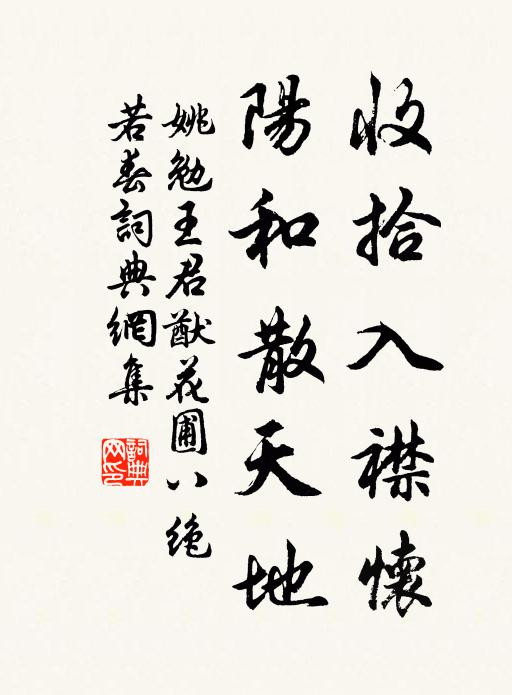 收拾入襟懷
陽和散天地
姚勉王君猷花圃八絕
若春詞典網集
詞典網印